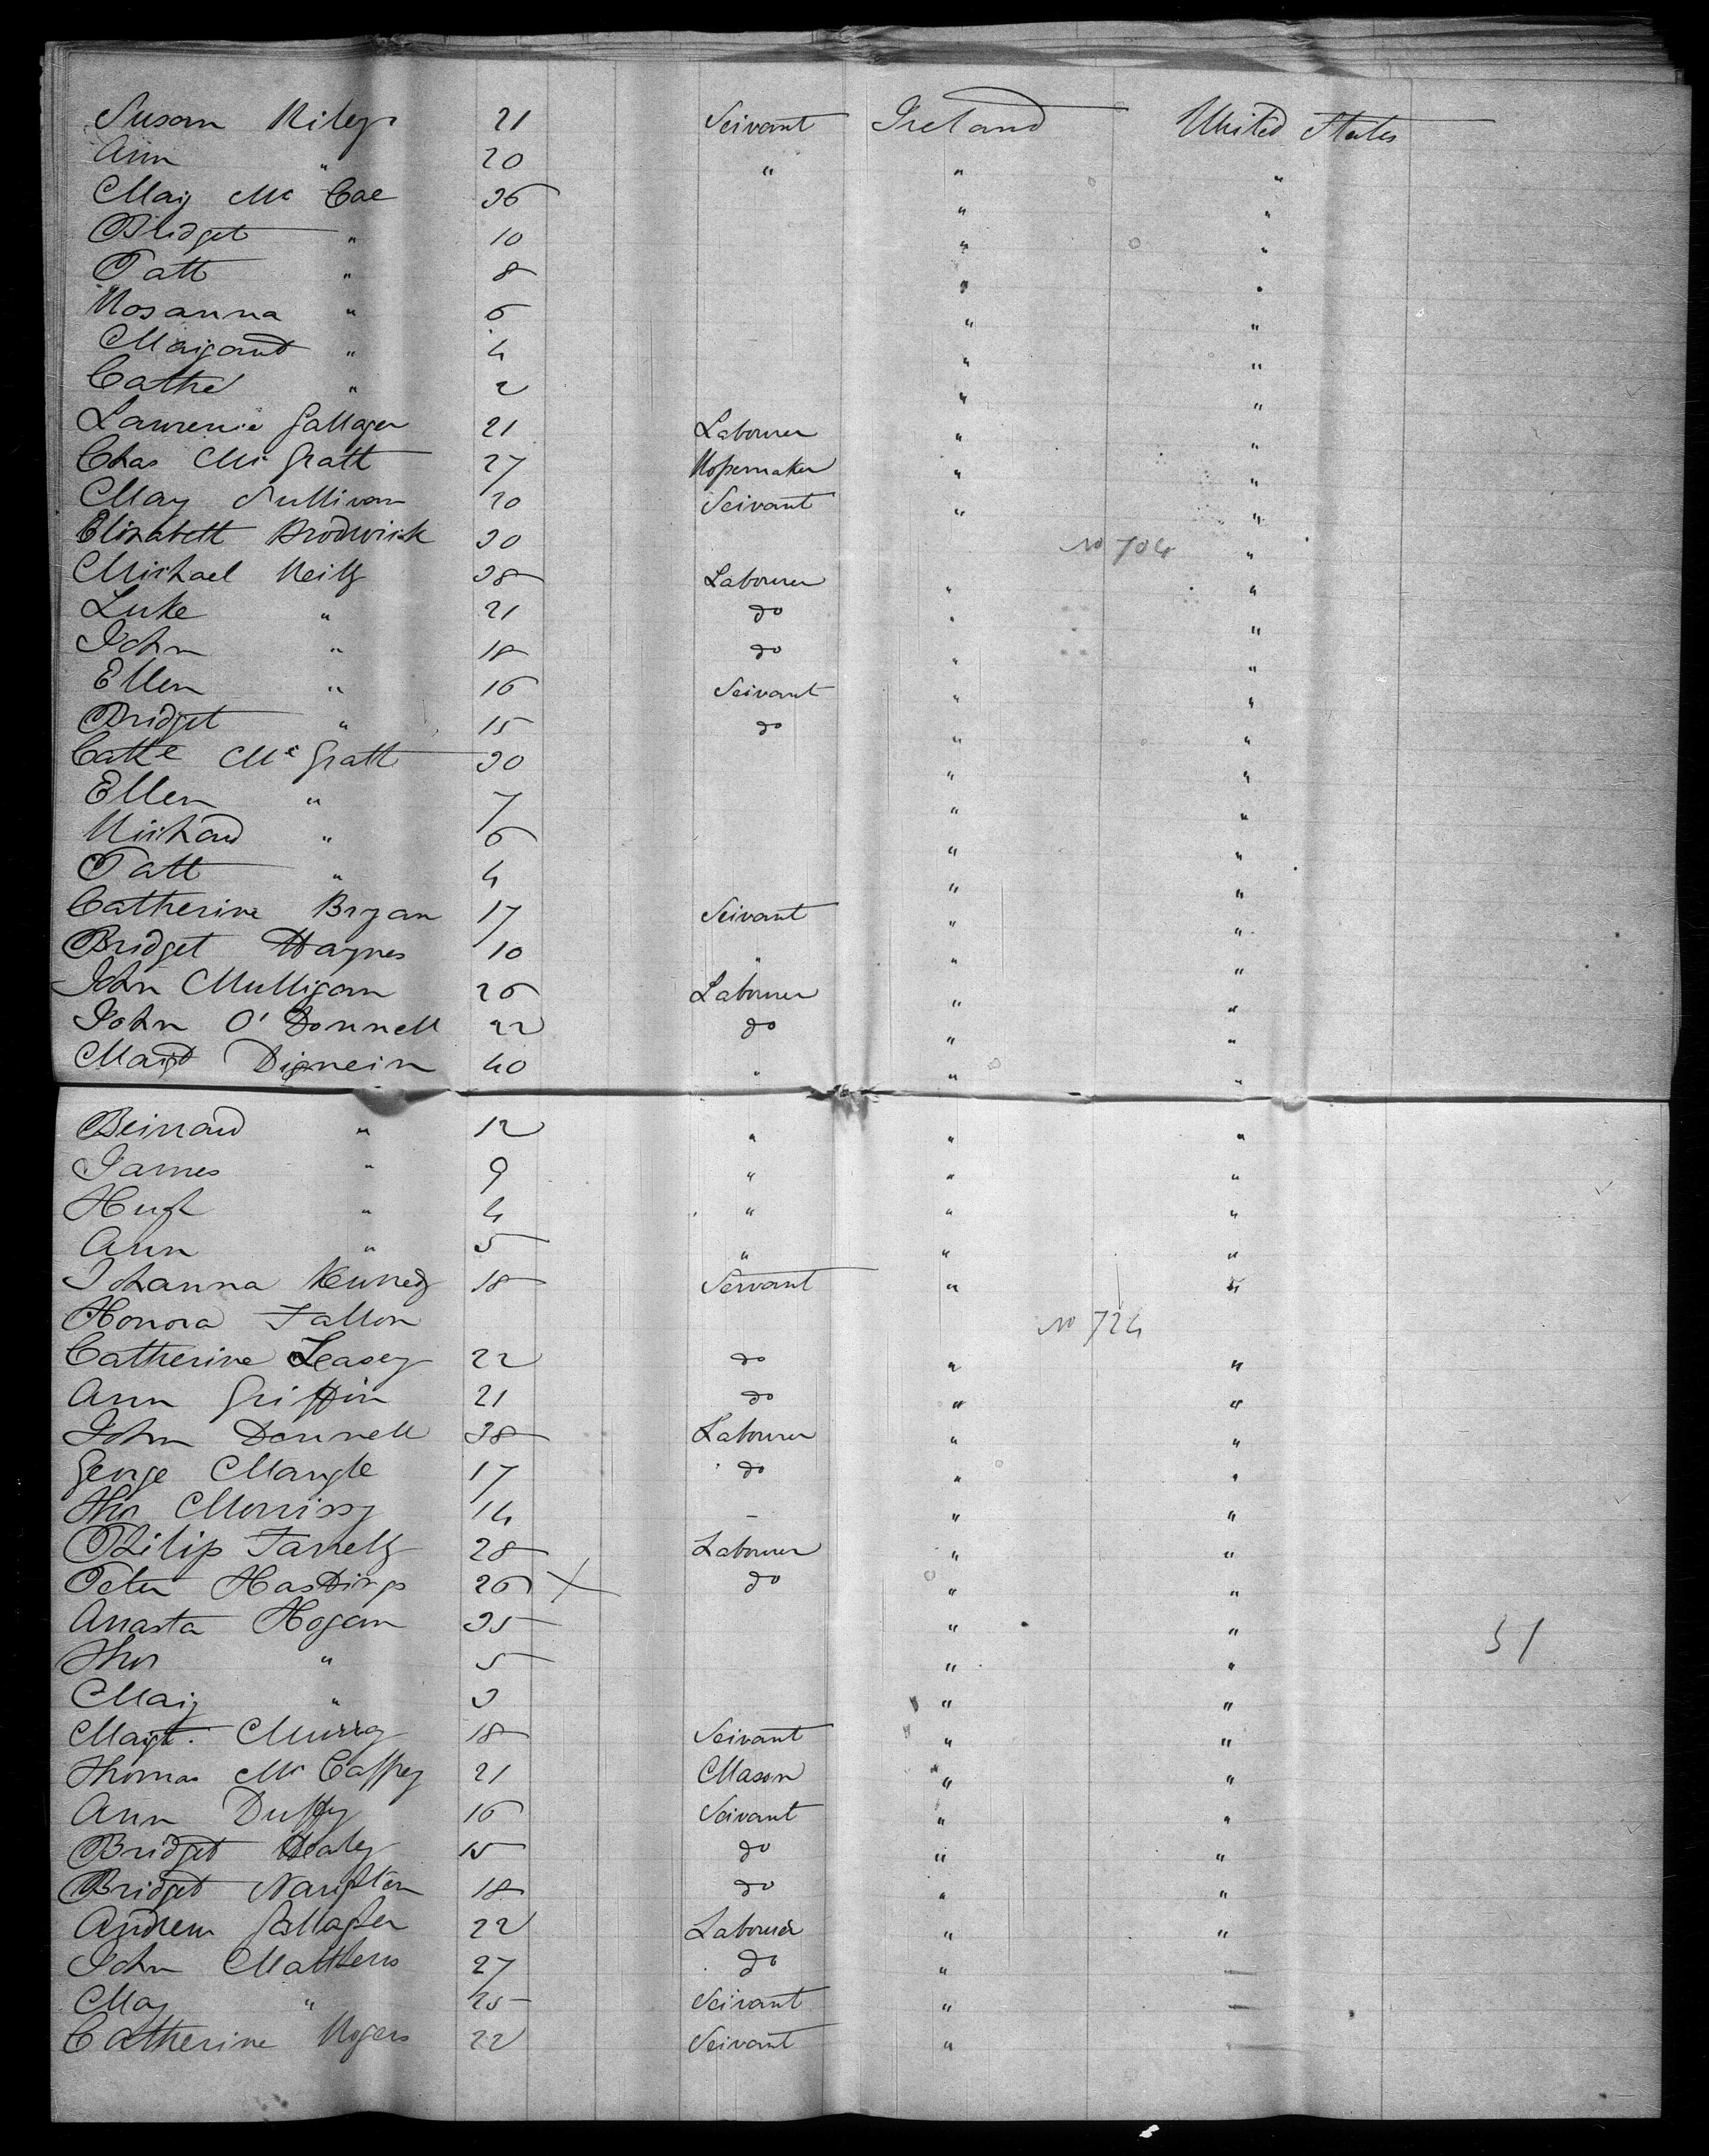 Susan Riley 21 Servant Ireland United States
Ann " 20 " " "
Mary Mc Cae 36 " "
Bridget " 10 " "
Patt " 8 " "
Rosanna " 6 " "
Margaret " 4 " "
Cathe " 2 " "
Lawrence Gallager 21 Labourer " "
Chas Mc Gratt 27 Ropemaker " "
Mary Sullivan 20 Servant " "
Elizabett Brodwick 30 No 704 "
Michael Reilly 38 Labourer " "
Luke " 21 do " "
John " 18 do " "
Ellen " 16 Servant " "
Bridget " 15 do " "
Cathe Mc Gratt 30 " "
Ellen " 7 " "
Richard " 6 " "
Patt " 4 " "
Catherine Bryan 17 Servant " "
Bridget Haynes 10 " " "
John Mulligan 26 Labourer " "
John O'Donnell 22 do " "
Margt Dignein 40 " " "
Bernard " 12 " " "
James " 9 " " "
Hugh " 4 " " "
Ann " 5 " " "
Johanna Kennedy 18 Servant " "
Honora Fallon No 724
Catherine Leasey 22 do " "
Ann Griffin 21 do " "
John Donnell 38 Labourer " "
George Mangle 17 do " "
Thos Morrissy 14 – " "
Philip Farrelly 28 Labourer " "
Peter Hastings 26 X do " "
Anasta Hogan 35 " "
Thos " 5 " " 51
Mary " 3 " "
Margt. Murray 18 Servant " "
Thomas Mc Caffrey 21 Mason " "
Ann Duffy 16 Servant " "
Bridget Healy 15 do " "
Bridget Naughton 18 do " "
Andrew Gallagher 22 Labourer " "
John Matthews 27 do " —
May " 25 Servant " —
Catherine Rogers 22 Servant " —